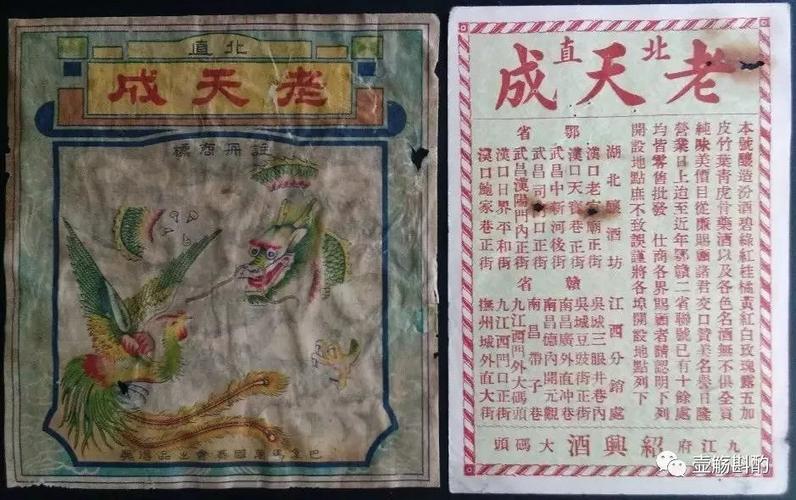 北直
老天成
註冊商標
巴拿馬萬國賽會出品
北直
老天成
本號釀造汾酒碧綠紅桂橘黃紅白玫瑰露五加
皮竹葉青虎骨藥酒以及各色名酒無不俱全貨
純味美價目從廉賜顧諸君交口贊美名譽日隆
營業日上迨至近年鄂贛二省聯號已有十餘處
均皆零售批發 仕商各界賜顧者請認明下列
開設地點庶不致誤謹將各埠開設地點列下
鄂省
湖北釀酒坊
漢口老官廟正街
漢口天寶巷正街
武昌中新河後街
武昌司門口正街
武昌漢陽門內正街
漢口日界平和街
漢口鮑家巷正街
贛省
江西分銷處
吳城三眼井巷內
吳城豆豉街正街
南昌廣外直冲巷
南昌德內開元觀
南昌帶子巷
九江西門外大碼頭
九江西門口正街
撫州城外直大街
九江府紹興酒大碼頭
壺觴斟酌